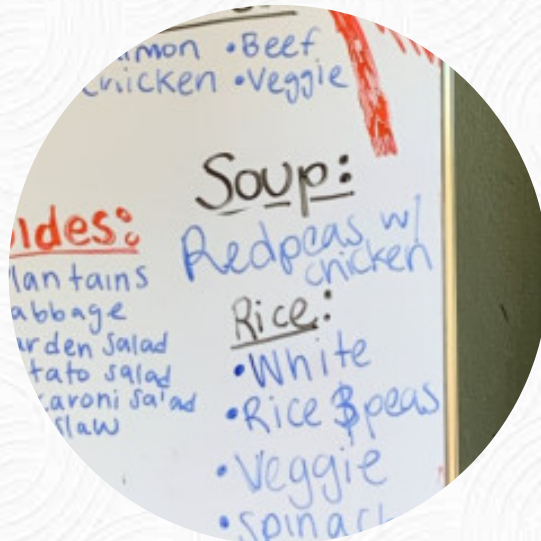 •Beef
chicken •Veggie
Soup:
Redpeas w/
chicken
Rice:
•White
•Rice $peas
•Veggie
•Spinach
ides:
lantains
abbage
arden Salad
tato salad
aroni Salad
slaw